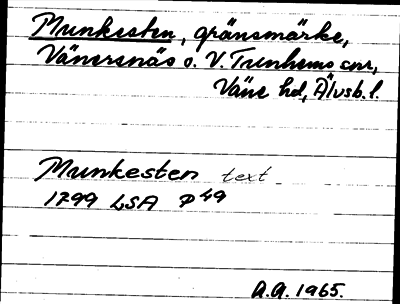 Munkesten, gränsmärke,
Vänersnäs o. V. Tunhems snr,
Väne hd, Älvsb. l.
Munkesten text
1799 LSA P 49
A.A. 1965.